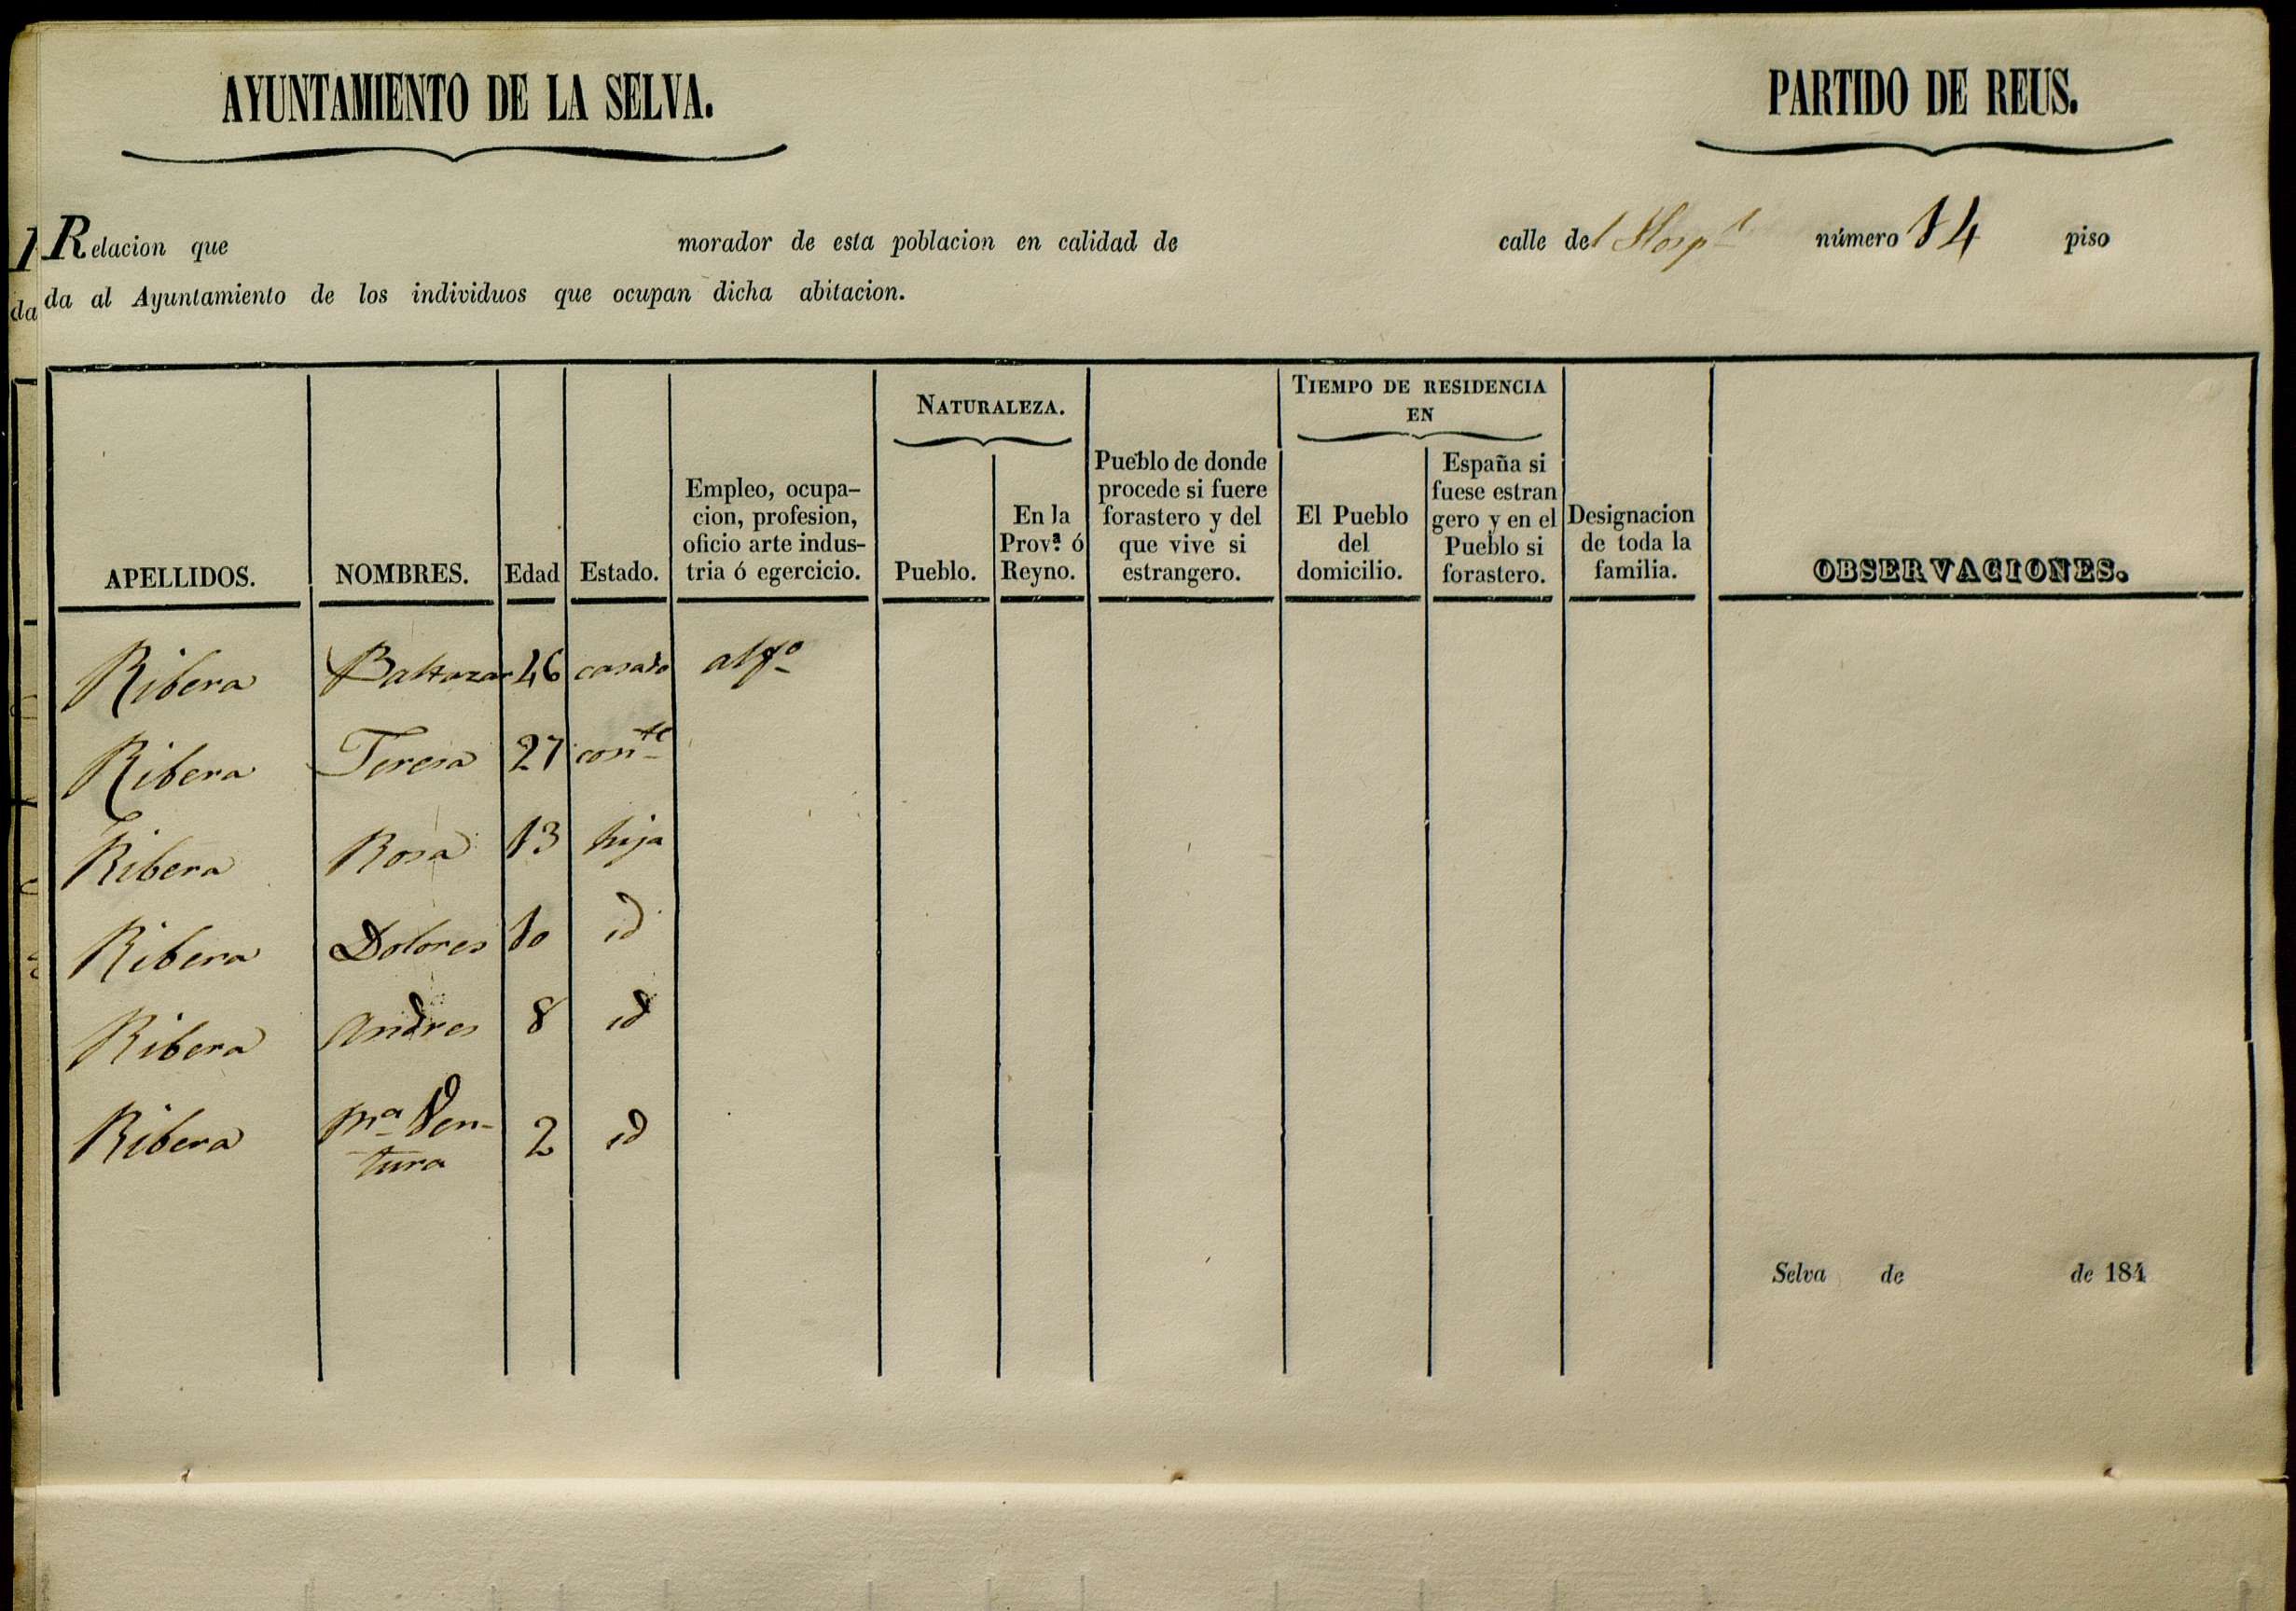 AYUNTAMIENTO DE LA SELVA.
PARTIDO DE REUS.
Relacion que morador de esta poblacion en calidad de calle del Hospl número 14 piso
da al Ayuntamiento de los individuos que ocupan dicha abitacion.
NATURALEZA.
TIEMPO DE RESIDENCIA
EN
APELLIDOS.
NOMBRES.
Edad
Estado.
Empleo, ocupa-
cion, profesion,
oficio arte indus-
tria ó egercicio.
Pueblo.
En la
Prov.ª ó
Reyno.
Pueblo de donde
procede si fuere
forastero y del
que vive si
estrangero.
El Pueblo
del
domicilio.
España si
fuese estran
gero y en el
Pueblo si
forastero.
Designacion
de toda la
familia.
OBSERVACIONES.
Ribera Baltazar 46 casado
Ribera Teresa 27 conte
Ribera Rosa 13 hija
Ribera Dolores 10 id
Ribera Andres 8 id
Ribera Ma Ven-
tura 2 id
Selva de de 184